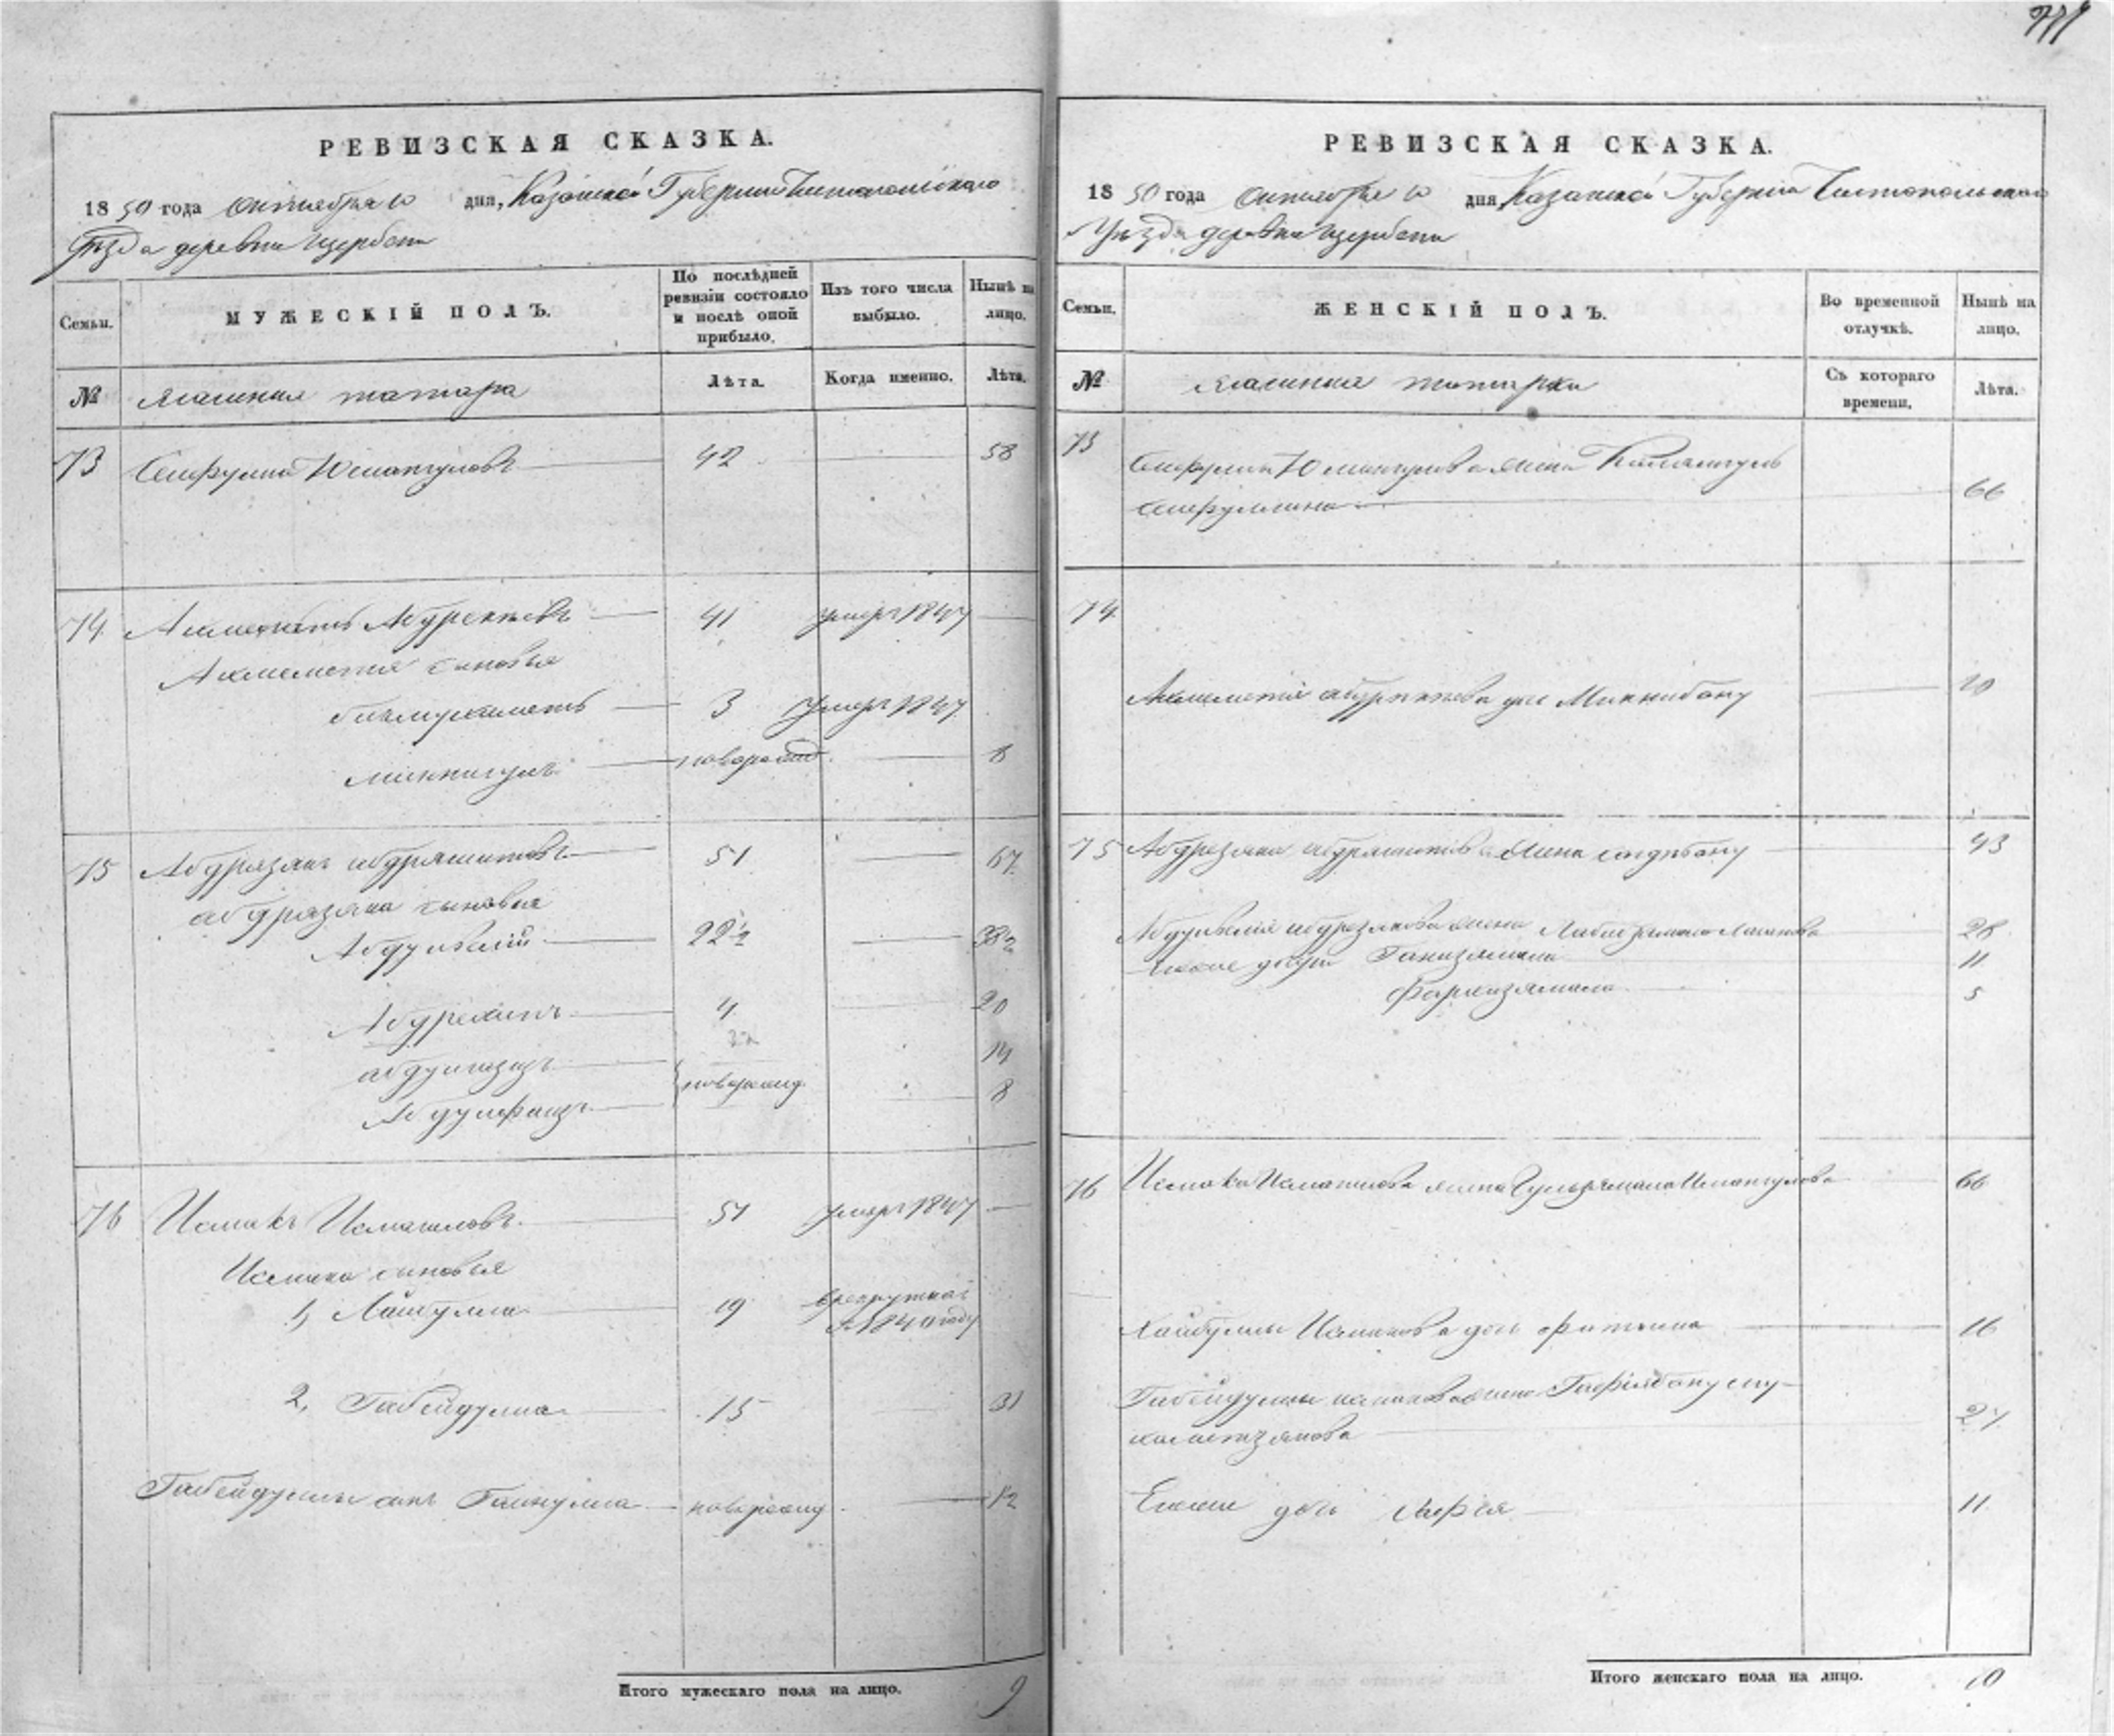 РЕВИЗСКАЯ СКАЗКА.
1850 года октября 10 дня, Казанской Губернии Чистопольскаго
Уѣзда деревни Ищербени
Семьи.
МУЖЕСКІЙ ПОЛЪ.
По послѣдней ревизіи состояло и послѣ оной прибыло.
Изъ того числа выбыло.
Нынѣ на лицо.
№
Ясашныя татара
Лѣта.
Когда именно.
Лѣта.
73 Сейфулла Юмангуловъ 42 58
74 Ахметъ Абдрекеевъ 41 умеръ 1847
Ахметя сыновья
3 умеръ 1847
Миннигулъ новорожд 8
75 Абдрязякъ Абдряшитовъ 51 67
Абдрязяка сыновья
Абдулвалій 22½ 38½
Абдрахимъ 4 20
Абдулгазизъ 14
новорожд
Абдулфаизъ 8
76 Исхакъ Исмагиловъ 51 умеръ 1847
Исхака сыновья
1, Хайбулла 19 в рекруты въ 1840 году
2, Габейдулла 15 31
Габейдуллы сынъ Гайнулла новорожд 12
Итого мужескаго пола на лицо. 9
РЕВИЗСКАЯ СКАЗКА.
1850 года октября 10 дня, Казанской Губерніи Чистопольскаго
Уѣзда деревни Ищербени
Семьи.
ЖЕНСКІЙ ПОЛЪ.
Во временной отлучкѣ.
Нынѣ на лицо.
№
Ясашныя татарки
Съ котораго времени.
Лѣта.
73 Сейфуллы Юмангулова жена
Сейфуллина 66
74
Ахметя Абдрекеева дочь Миннибану 10
75 Абдрезяка Абдрашитова жена Сагдебану 43
Абдулвалія Абдрезякова жена 28
дочери Ганизямала 11
Фархизямала 5
76 Исхака Исмагилова жена Гульзямала Имангулова 66
Хайбуллы Исхакова дочь Фатыма 16
Габейдуллы Исхакова жена Гафіябану
27
Ихъ дочь Сафія 11
Итого женскаго пола на лицо. 10